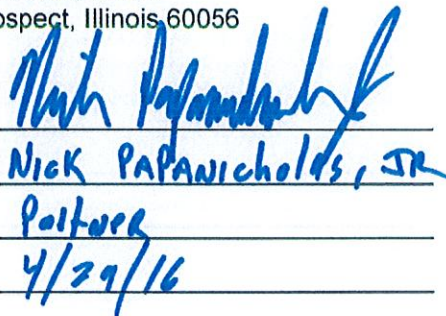 ospect, Illinois 60056
Nick Papanicholas Jr
NICK PAPANICholAS, JR
Partner
4/29/16